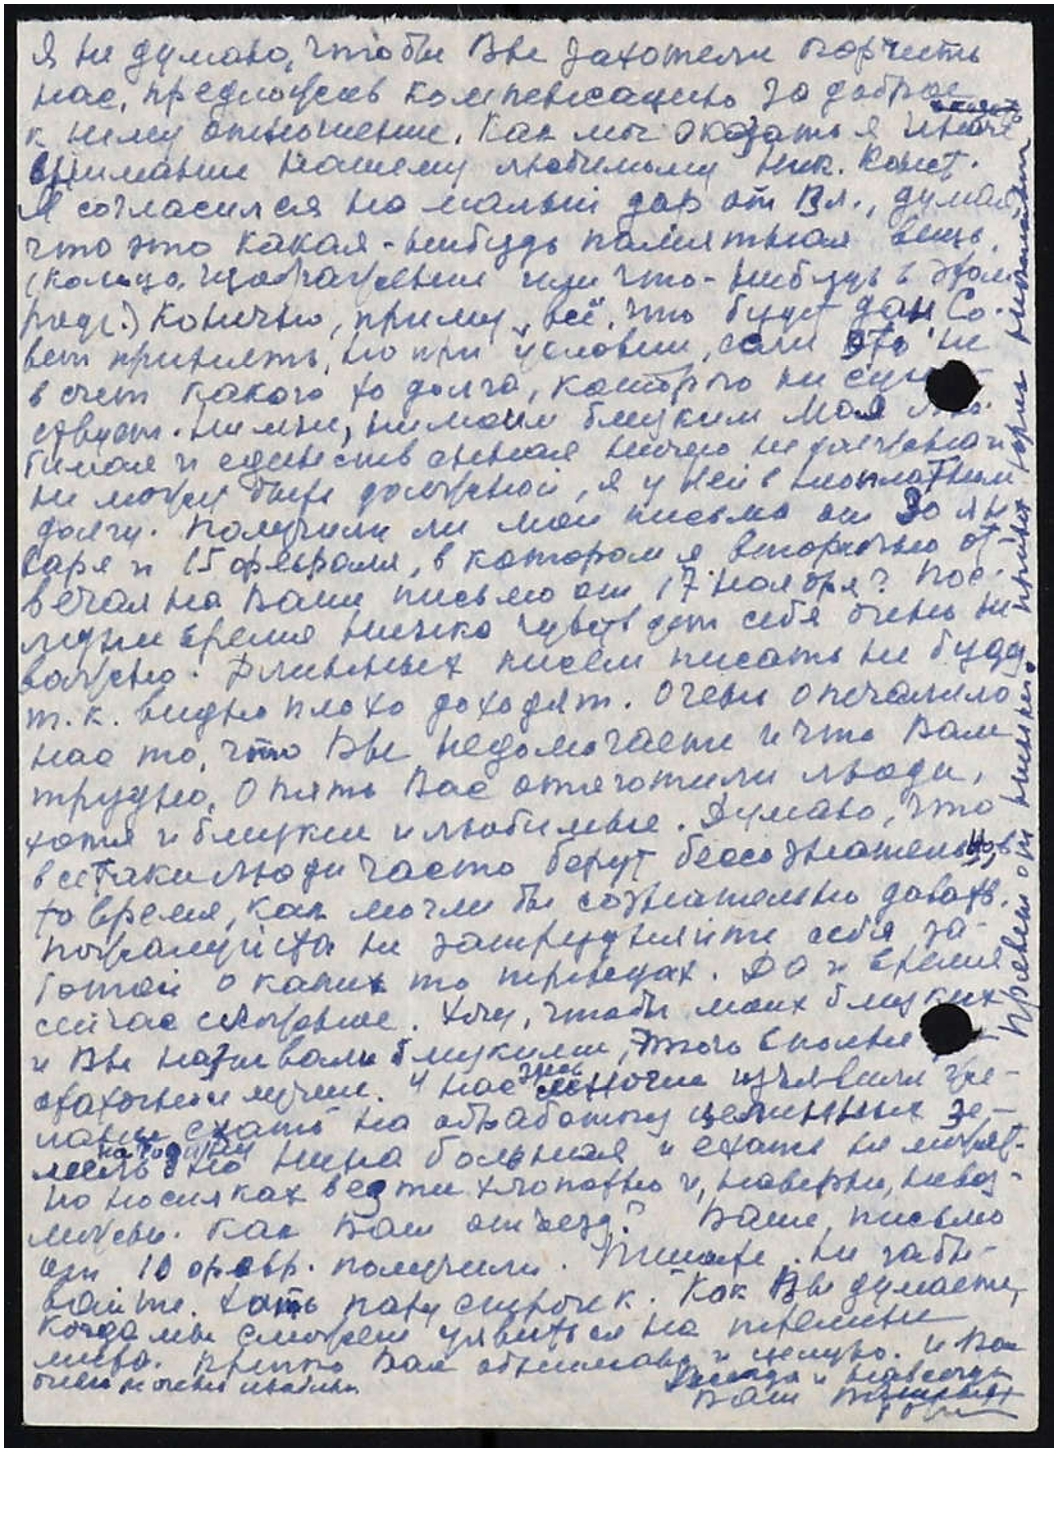 Я не думаю, чтобы Вы захотели порчить
нас, предложив компенсацию за доброе
к нему отношение. Как мог оказать я иначе
внимание нашему любимому Ник. Конст.
Я согласился на малый дар от Вл., думая
что это какая-нибудь памятная вещь.
(кольцо, изображение или что-нибудь в этом
роде.) Конечно, приму всё, что будет дан Со-
вет принять, но при условии, если это не
в счет какого то долга, которого не сущ
ствует. Ни мне, ни моим близким моя лю-
бимая и единственная ничего не должна и
не может быть должной, я у ней в неоплатном
долгу. Получили ли мои письма от 30 ян
варя и 15 февраля, в котором я вторично от-
вечал на Ваше письмо от 17 ноября? Пос-
леднее время Ничка чувствует себя очень не
важно. Длинных писем писать не буду,
т.к. видно плохо доходят. Очень опечалило
нас то, что Вы недомогаете и что Вам
трудно. Опять Вас отяготили люди,
хотя и близкие и любимые. Думаю, что
всетаки люди часто берут бессознательно, в
то время, как могли бы сознательно давать.
Пожалуйста не затрудняйте себя за-
ботой о каких то переводах. Да и время
сейчас сложное. Хочу, чтобы моих близких
и Вы называли близкими, этого вполне
достаточно и лучше. У нас здесь многие изъявили же-
лание ехать на обработку целинных зе-
мель но Нина больная и ехать не может.
На носилках везти хлопотно и, наверно, невоз-
можно. Как Ваш отъезд? Ваше письмо
от 10 февр. получили. Пишите. Не забы-
вайте. Хоть пару строчек. Как Вы думаете,
когда мы сможем увидеться на
Крепко Вас обнимаю и целую. и Вас
очень и очень любим.
Всегда и навсегда
Ваш
Привет от Нички. Привет